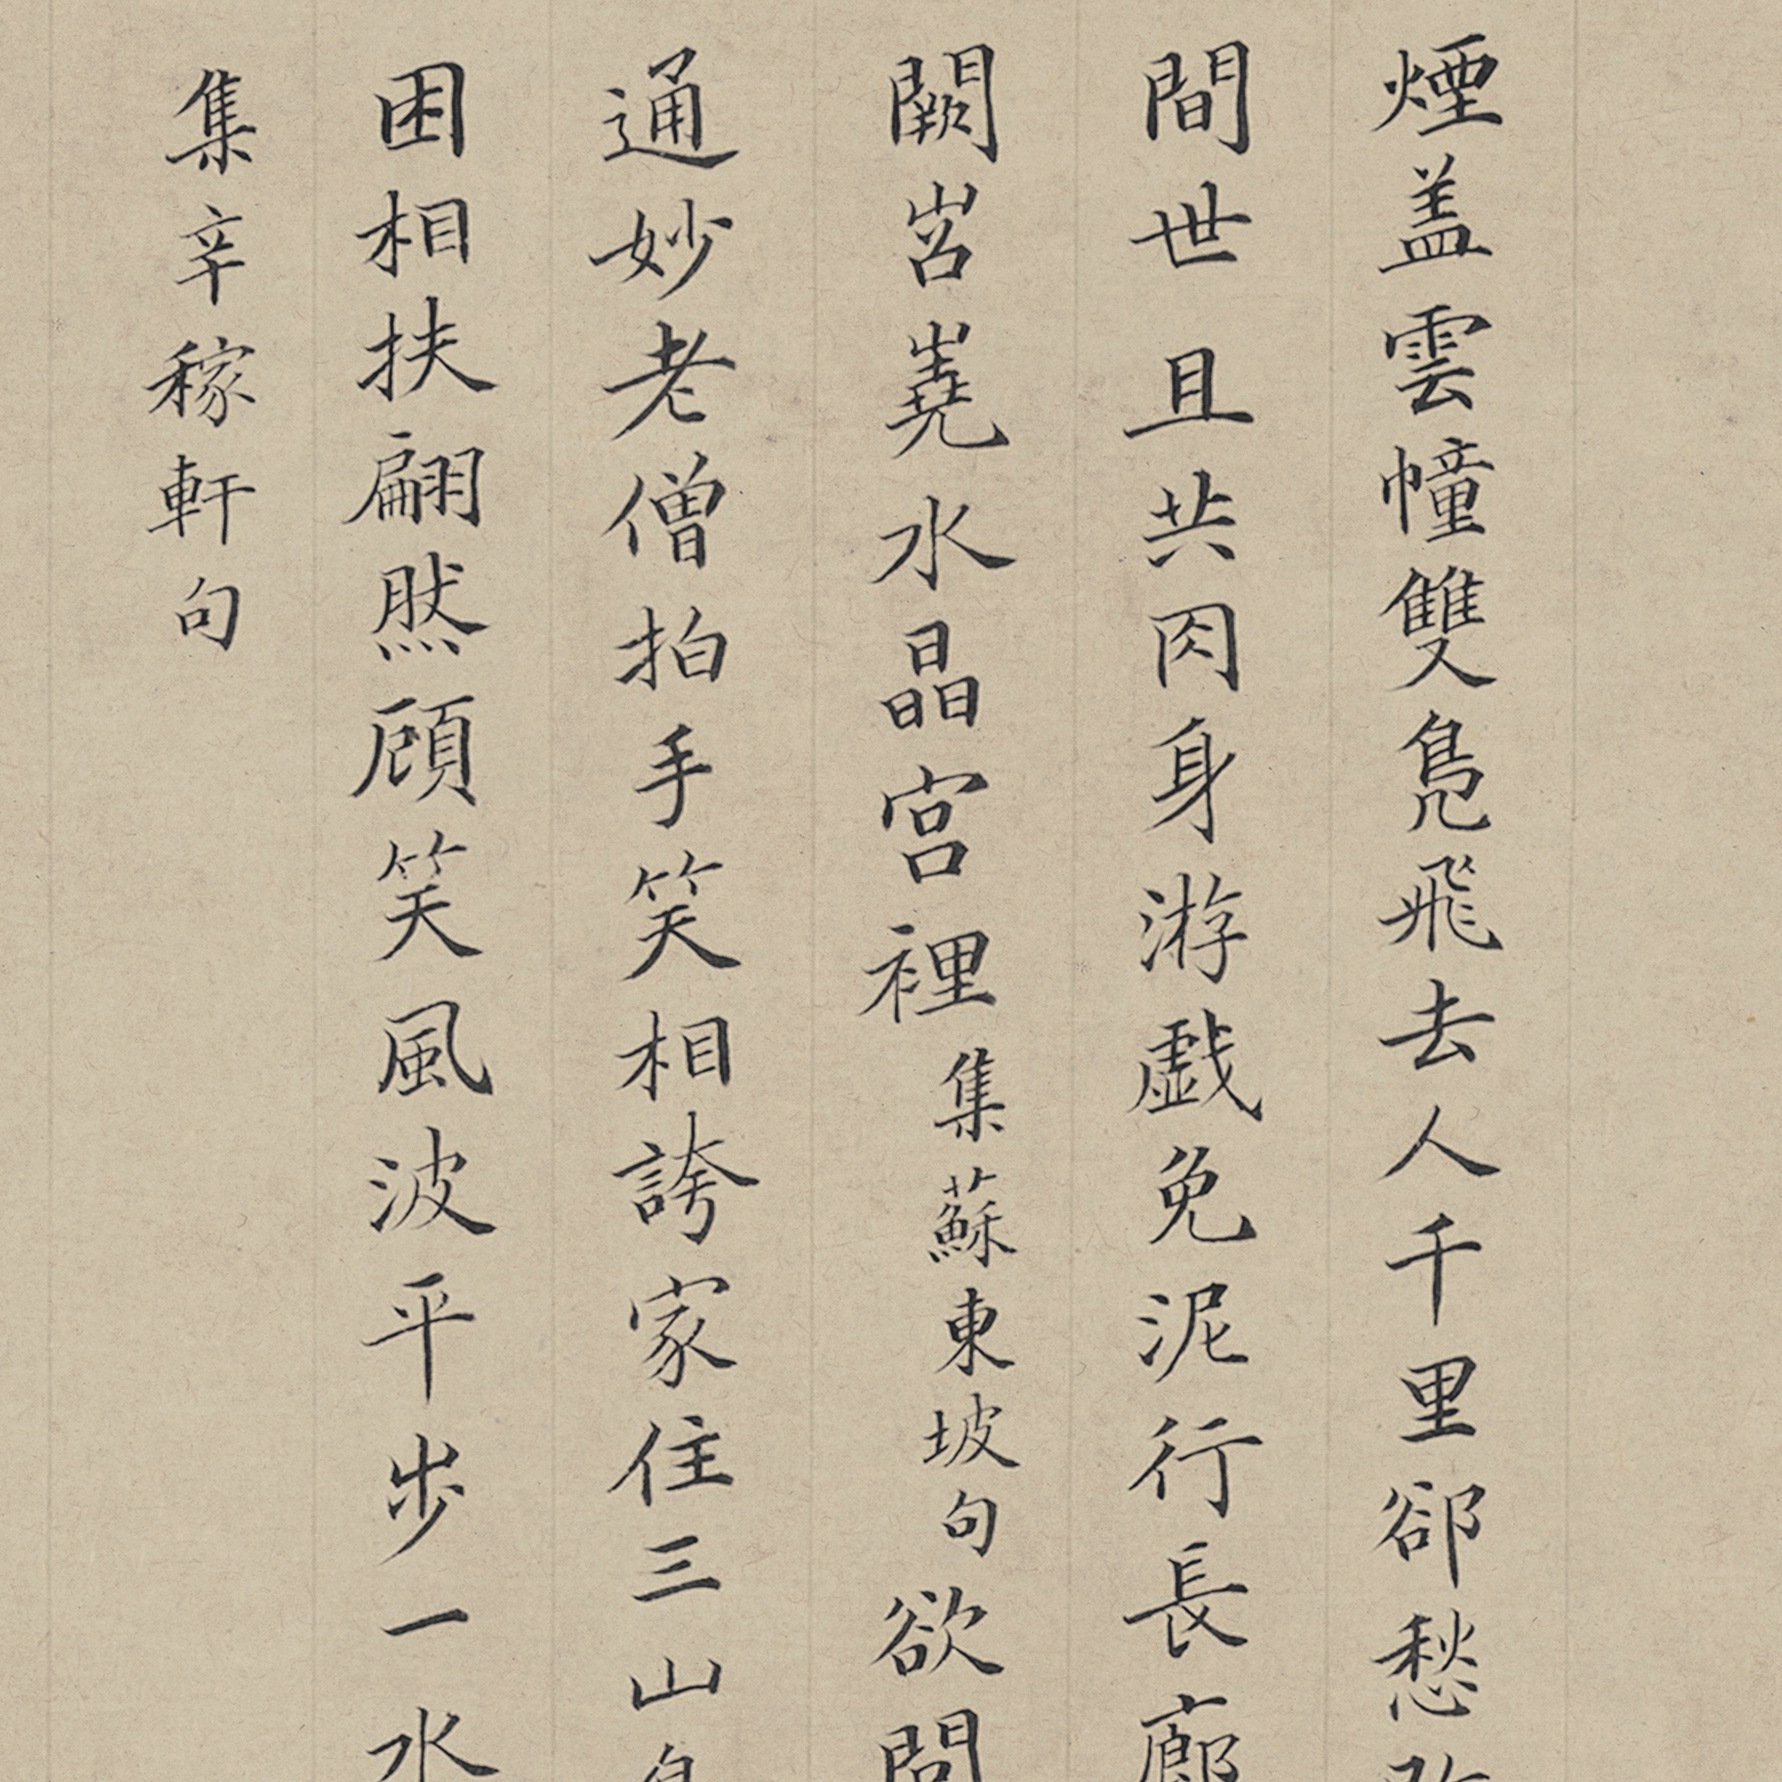 煙盖雲幢雙鳧飛去人千里郤愁
間世且共肉身游戲免泥行長廊
闕岧嶤水晶宮裡集蘇東坡句欲問
通妙老僧拍手笑相誇家住三山
困相扶翩然顧笑風波平步一水
集辛稼軒句